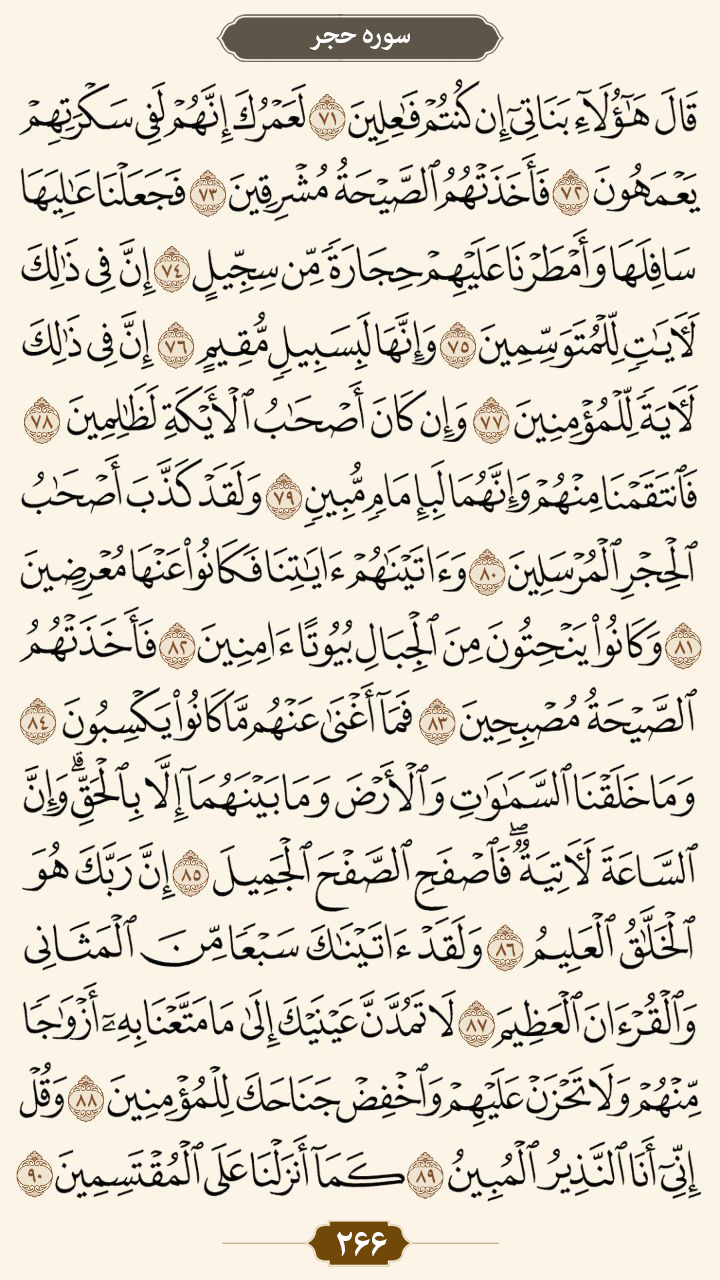 سوره حجر
قَالَ هَٰٓؤُلَآءِ بَنَاتِيٓ إِن كُنتُمۡ فَٰعِلِينَ ٧١ لَعَمۡرُكَ إِنَّهُمۡ لَفِي سَكۡرَتِهِمۡ
يَعۡمَهُونَ ٧٢ فَأَخَذَتۡهُمُ ٱلصَّيۡحَةُ مُشۡرِقِينَ ٧٣ فَجَعَلۡنَا عَٰلِيَهَا
سَافِلَهَا وَأَمۡطَرۡنَا عَلَيۡهِمۡ حِجَارَةٗ مِّن سِجِّيلٍ ٧٤ إِنَّ فِي ذَٰلِكَ
لَأٓيَٰتٖ لِّلۡمُتَوَسِّمِينَ ٧٥ وَإِنَّهَا لَبِسَبِيلٖ مُّقِيمٍ ٧٦ إِنَّ فِي ذَٰلِكَ
لَأٓيَةٗ لِّلۡمُؤۡمِنِينَ ٧٧ وَإِن كَانَ أَصۡحَٰبُ ٱلۡأَيۡكَةِ لَظَٰلِمِينَ ٧٨
فَٱنتَقَمۡنَا مِنۡهُمۡ وَإِنَّهُمَا لَبِإِمَامٖ مُّبِينٖ ٧٩ وَلَقَدۡ كَذَّبَ أَصۡحَٰبُ
ٱلۡحِجۡرِ ٱلۡمُرۡسَلِينَ ٨٠ وَءَاتَيۡنَٰهُمۡ ءَايَٰتِنَا فَكَانُواْ عَنۡهَا مُعۡرِضِينَ
٨١ وَكَانُواْ يَنۡحِتُونَ مِنَ ٱلۡجِبَالِ بُيُوتًا ءَامِنِينَ ٨٢ فَأَخَذَتۡهُمُ
ٱلصَّيۡحَةُ مُصۡبِحِينَ ٨٣ فَمَآ أَغۡنَىٰ عَنۡهُم مَّا كَانُواْ يَكۡسِبُونَ ٨٤
وَمَا خَلَقۡنَا ٱلسَّمَٰوَٰتِ وَٱلۡأَرۡضَ وَمَا بَيۡنَهُمَآ إِلَّا بِٱلۡحَقِّۗ وَإِنَّ
ٱلسَّاعَةَ لَأٓتِيَةٞۖ فَٱصۡفَحِ ٱلصَّفۡحَ ٱلۡجَمِيلَ ٨٥ إِنَّ رَبَّكَ هُوَ
ٱلۡخَلَّٰقُ ٱلۡعَلِيمُ ٨٦ وَلَقَدۡ ءَاتَيۡنَٰكَ سَبۡعٗا مِّنَ ٱلۡمَثَانِي
وَٱلۡقُرۡءَانَ ٱلۡعَظِيمَ ٨٧ لَا تَمُدَّنَّ عَيۡنَيۡكَ إِلَىٰ مَا مَتَّعۡنَا بِهِۦٓ أَزۡوَٰجٗا
مِّنۡهُمۡ وَلَا تَحۡزَنۡ عَلَيۡهِمۡ وَٱخۡفِضۡ جَنَاحَكَ لِلۡمُؤۡمِنِينَ ٨٨ وَقُلۡ
إِنِّيٓ أَنَا ٱلنَّذِيرُ ٱلۡمُبِينُ ٨٩ كَمَآ أَنزَلۡنَا عَلَى ٱلۡمُقۡتَسِمِينَ ٩٠
۲۶۶